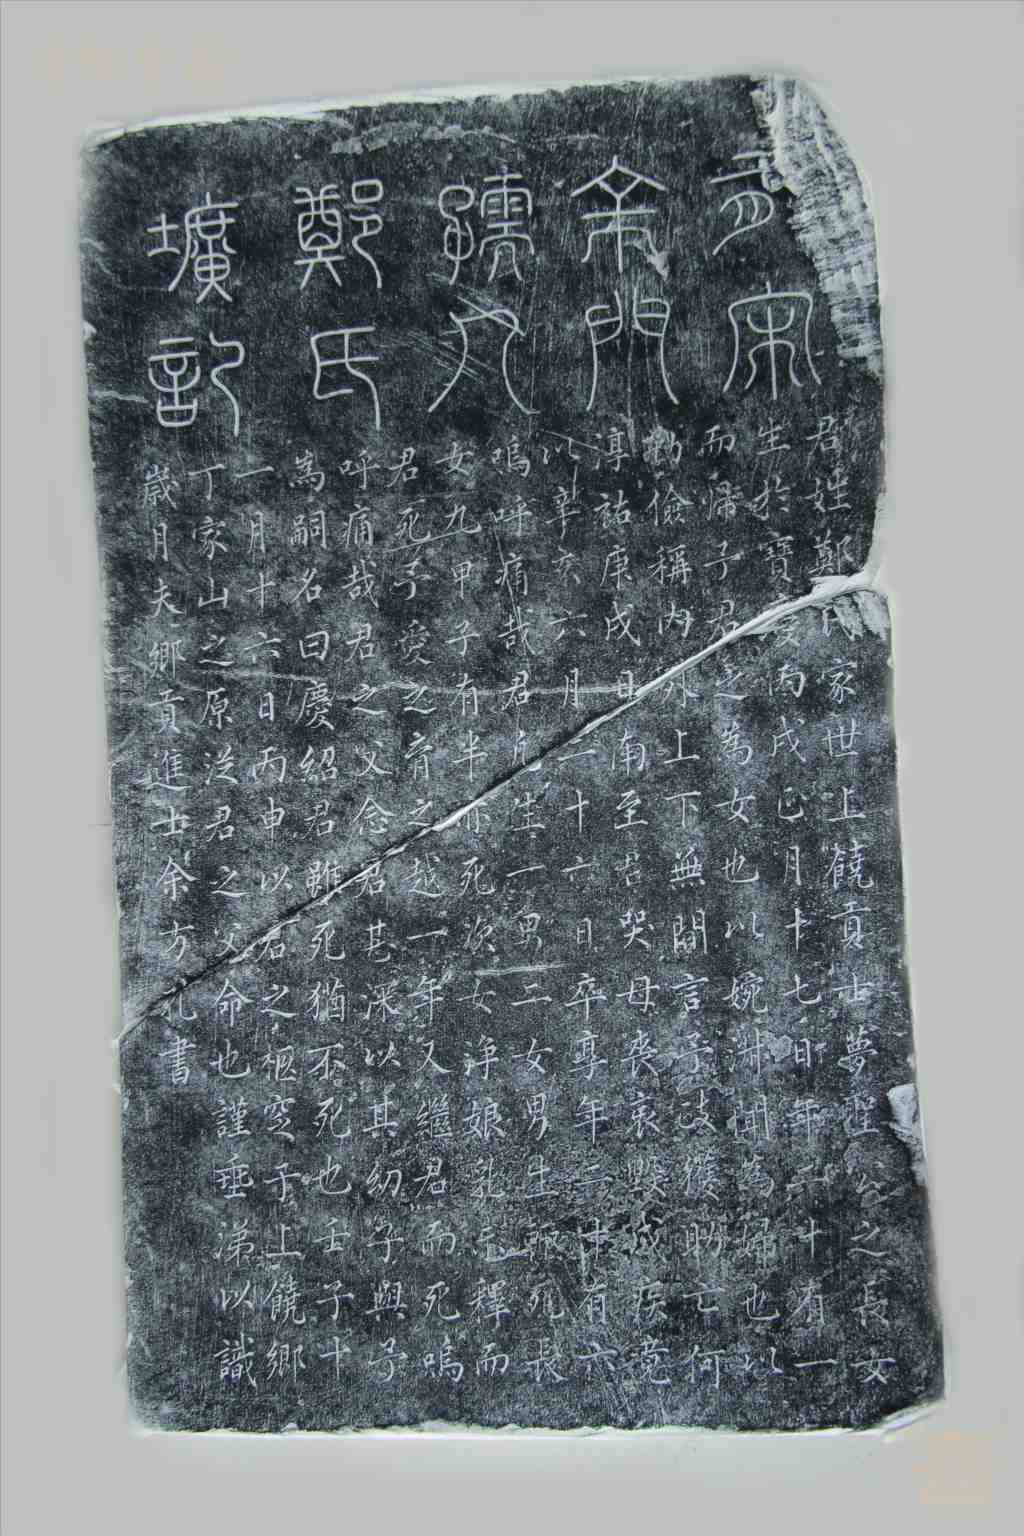 有宋
余門
孺人
鄭氏
壙記
君姓鄭氏家世上饒貢士夢聖公之長女
生於寶慶丙戌正月十七日年二十有一
而歸予君之為女也以婉淑聞為婦也以
勤儉稱內外上下無間言予
亡何
淳祐庚戌日南至君哭母喪哀毀成疾竟
以辛亥六月二十六日卒享年二十有六
嗚呼痛哉君凡生一男二女男生輒死長
女九甲子有半亦死次女淨娘乳毛釋而
君死予愛之育之越一年又繼君而死嗚
呼痛哉君之父念君甚深以其幼子與予
為嗣名曰慶紹君雖死猶不死也壬子十
一月十六日丙申以君之柩窆于上饒鄉
丁家山之原從君之父命也謹垂涕以識
歲月夫鄉貢進士余方孔書